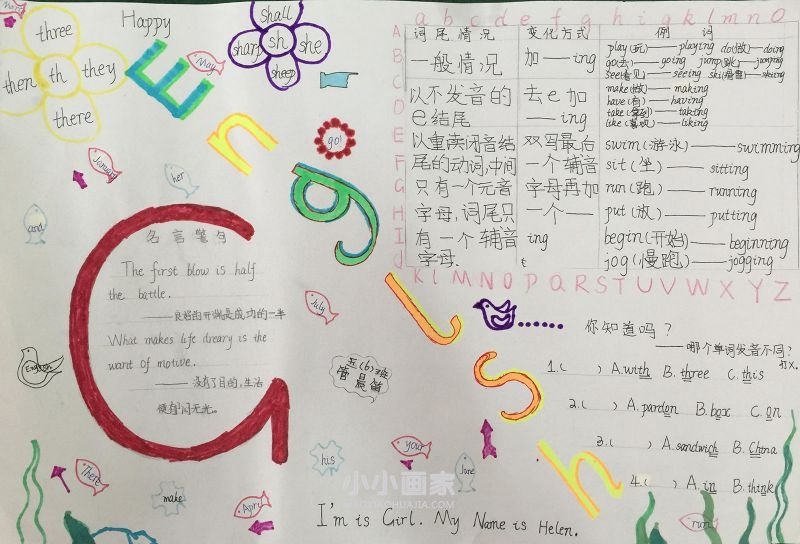 Happy
English
three
then th they
there
shall
sharp sh she
sheep
May
go!
her
and
July
English
There
make
April
his
your
June
run
名言警句
The first blow is half
the battle.
——良好的开端是成功的一半
What makes life dreary is the
want of motive.
——没有了目的,生活
便郁闷无光。
五(6)班
管晨笛
I'm is Girl. My Name is Helen.
a b c d e f g h i g k l m n O
A
B
C
D
E
F
G
H
I
J
K l M N O P Q R S T U V W X Y Z
词尾情况 变化方式 例词
一般情况 加——ing play(玩)——playing do(做)——doing
go(去)——going jump(跳)——jumping
see(看见)——seeing ski(滑雪)——skiing
以不发音的 去e加 make(做)——making
e结尾 ——ing have(有)——having
take(拿到)——taking
like(喜欢)——liking
以重读闭音结 双写最后 swim(游泳)——swimming
尾的动词,中间 一个辅音 sit(坐)——sitting
只有一个元音 字母再加 run(跑)——running
字母,词尾只 一个— put(放)——putting
有一个辅音 ing begin(开始)——beginning
字母. jog(慢跑)——jogging
你知道吗?
——哪个单词发音不同?
打X.
1.( ) A.with B.three C.this
2.( ) A.pardon B.box C.on
3.( ) A.sandwich B.China
4.( ) A.in B.think
小小画家